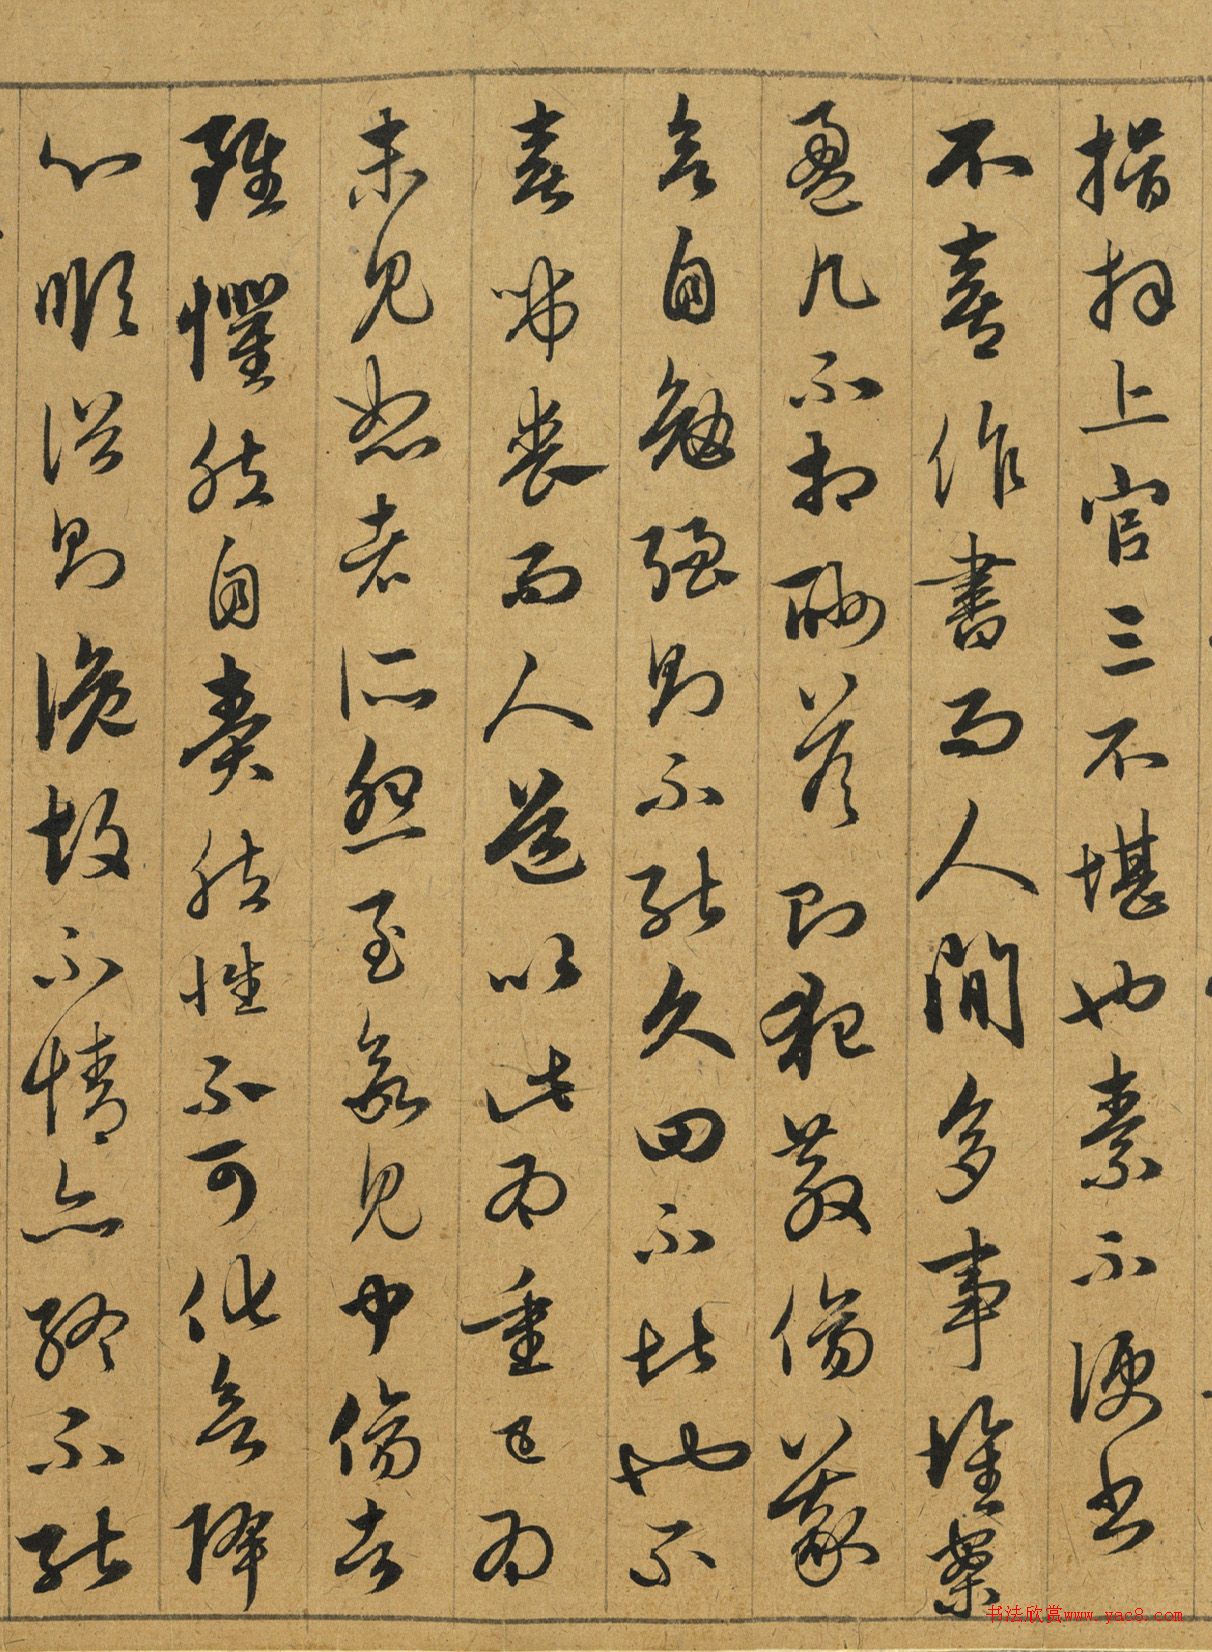 揖拜上官三不堪也素不便书
不喜作書而人間多事堆案
盈几不相酬答则犯教傷義
欲自勉强则不能久四不堪也不
喜吊喪而人道以此为重已为
未見恕者所怨至欲見中傷者
雖懼然自責然性不可化欲降
心順俗则詭故不情亦終不能
书法欣赏www.yac8.com